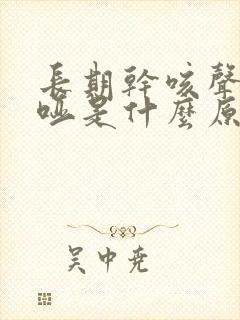 長期幹咳聲
啞是什麼原
吳中堯